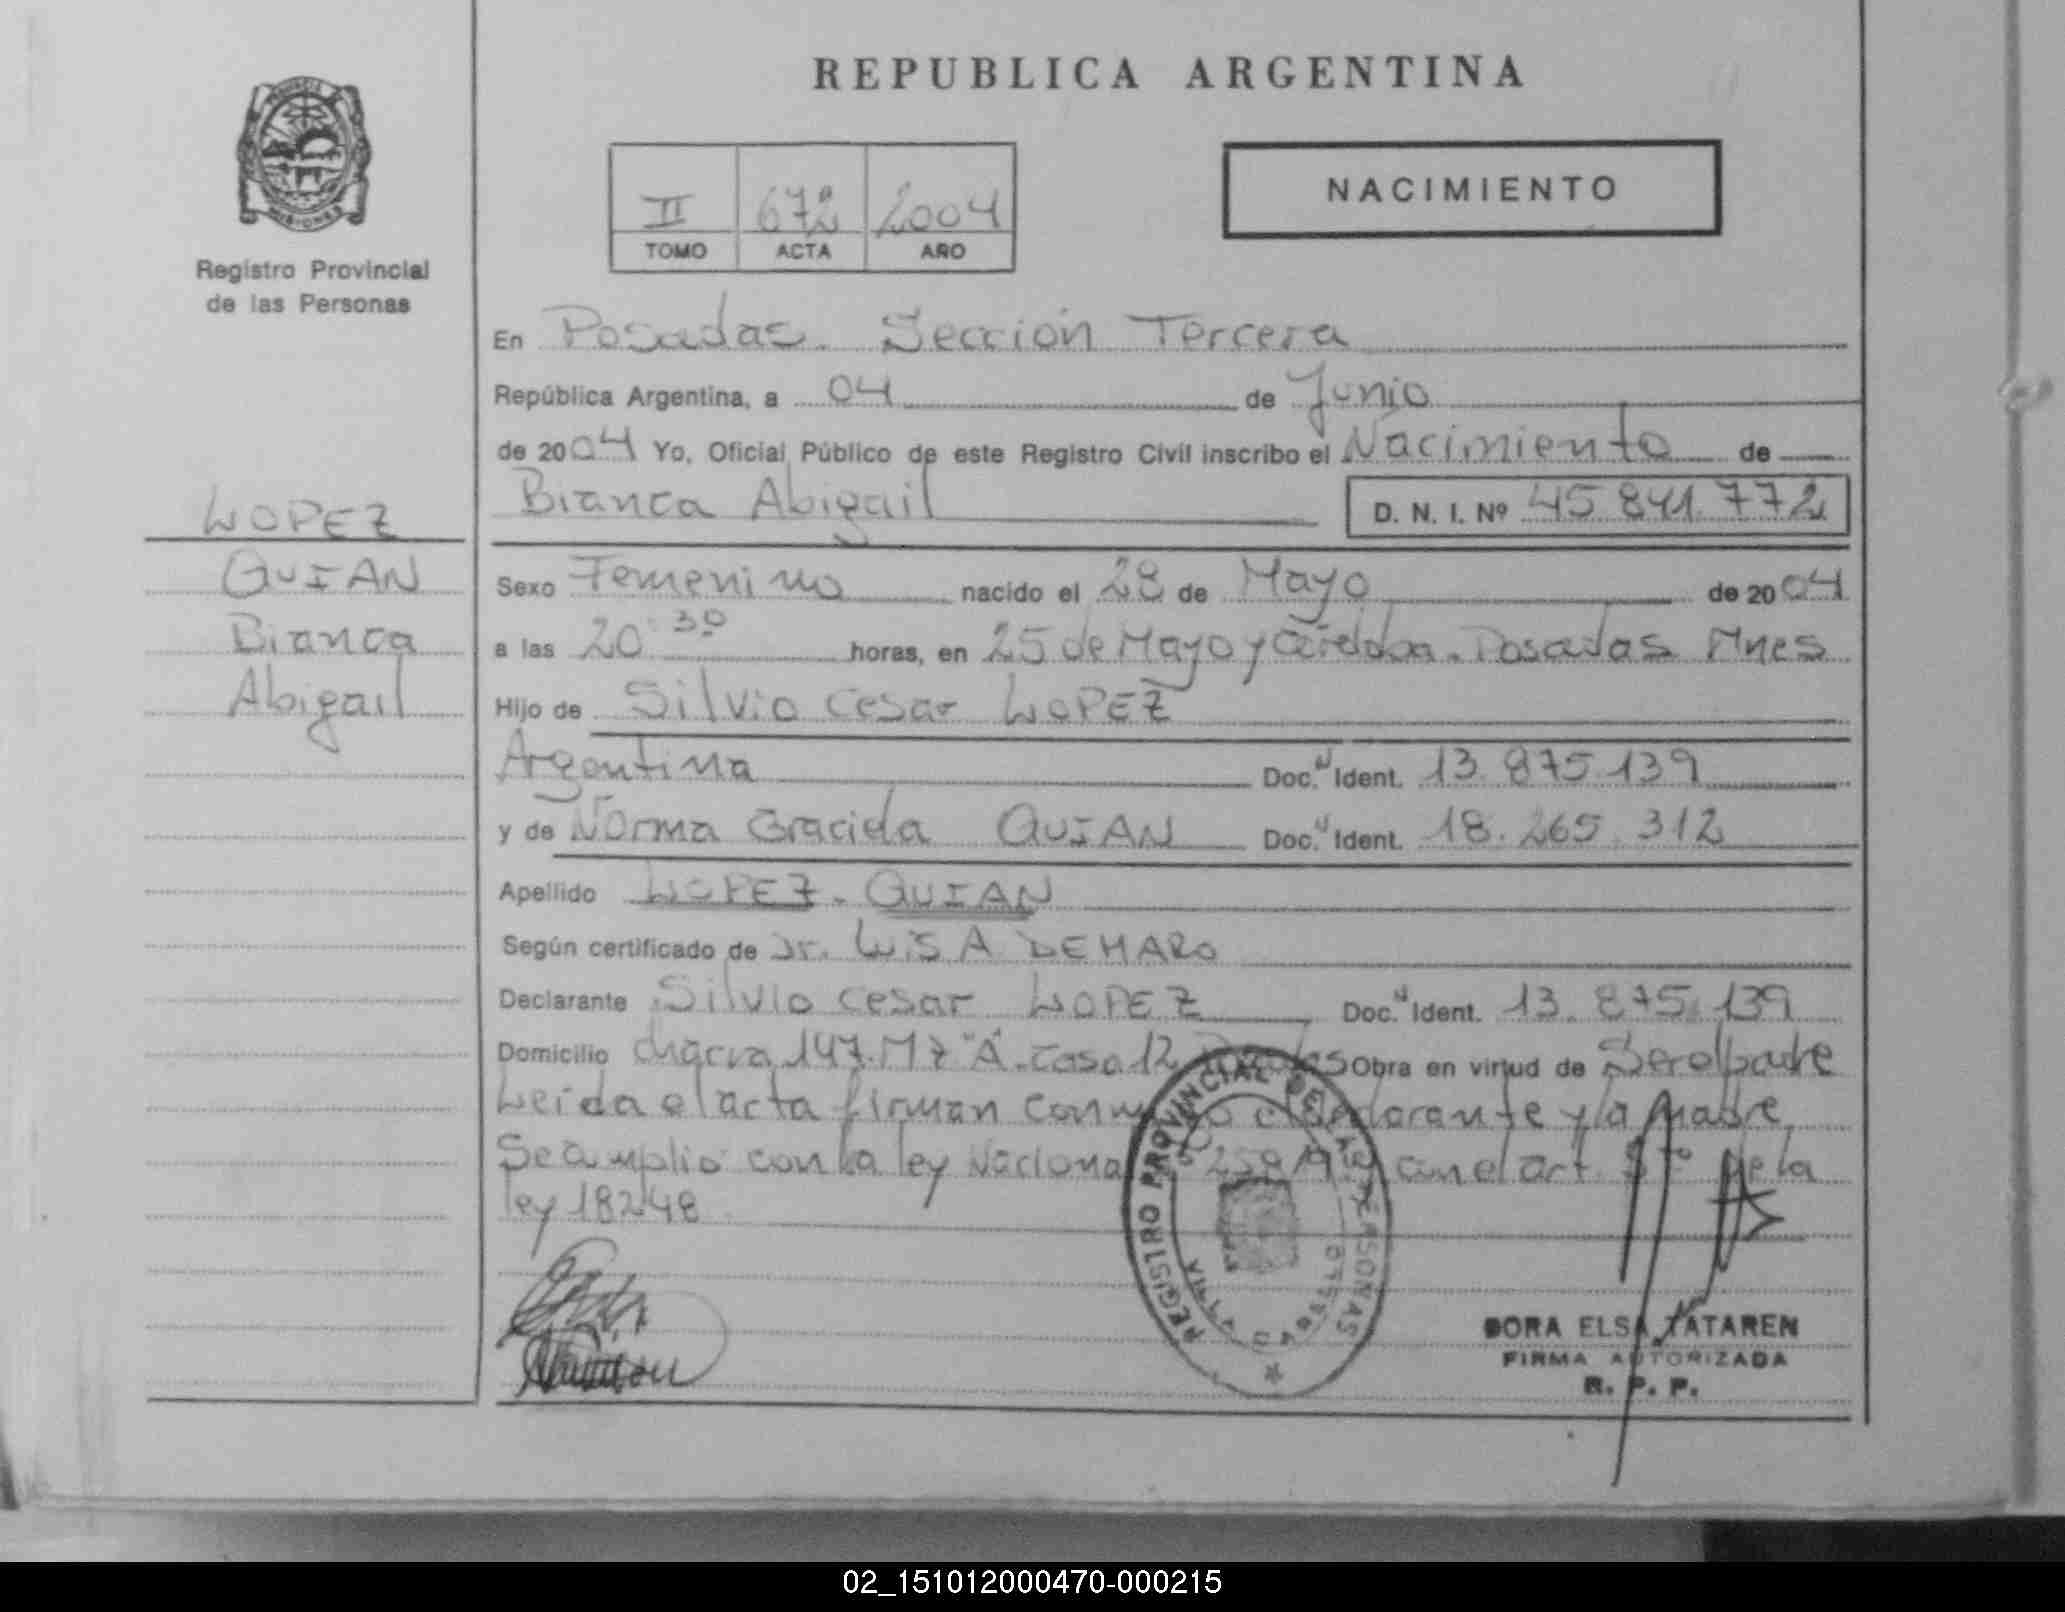 REPUBLICA ARGENTINA
PROVINCIA DE
MISIONES
Registro Provincial
de las Personas
II 672 2004
TOMO ACTA AÑO
NACIMIENTO
En Posadas. Sección Tercera
República Argentina, a 04 de Junio
de 2004 Yo, Oficial Público de este Registro Civil inscribo el Nacimiento de
Bianca Abigail D. N. I. Nº 45 841.772
LOPEZ
QUIAN
Bianca
Abigail
Sexo Femenino nacido el 28 de Mayo de 2004
a las 20:30 horas, en 25 de Mayo y Córdoba. Posadas Mnes
Hijo de Silvio Cesar LOPEZ
Argentina Doc. Ident. 13.875.139
y de Norma Graciela QUIAN Doc. Ident. 18.265.312
Apellido LOPEZ. QUIAN
Según certificado de Dr. LUIS A DEMARO
Declarante Silvio Cesar LOPEZ Doc. Ident. 13.875.139
Domicilio chacra 147. Mz "A". Casa 12 Obra en virtud de Ser el padre
Leida el acta firman conmigo el declarante y la madre
Se amplio con la ley Nacional con el art. 5to de la
ley 18248
REGISTRO PROVINCIAL DE LAS PERSONAS
POSADAS
DORA ELSA TATAREN
FIRMA AUTORIZADA
R. P. P.
02_151012000470-000215